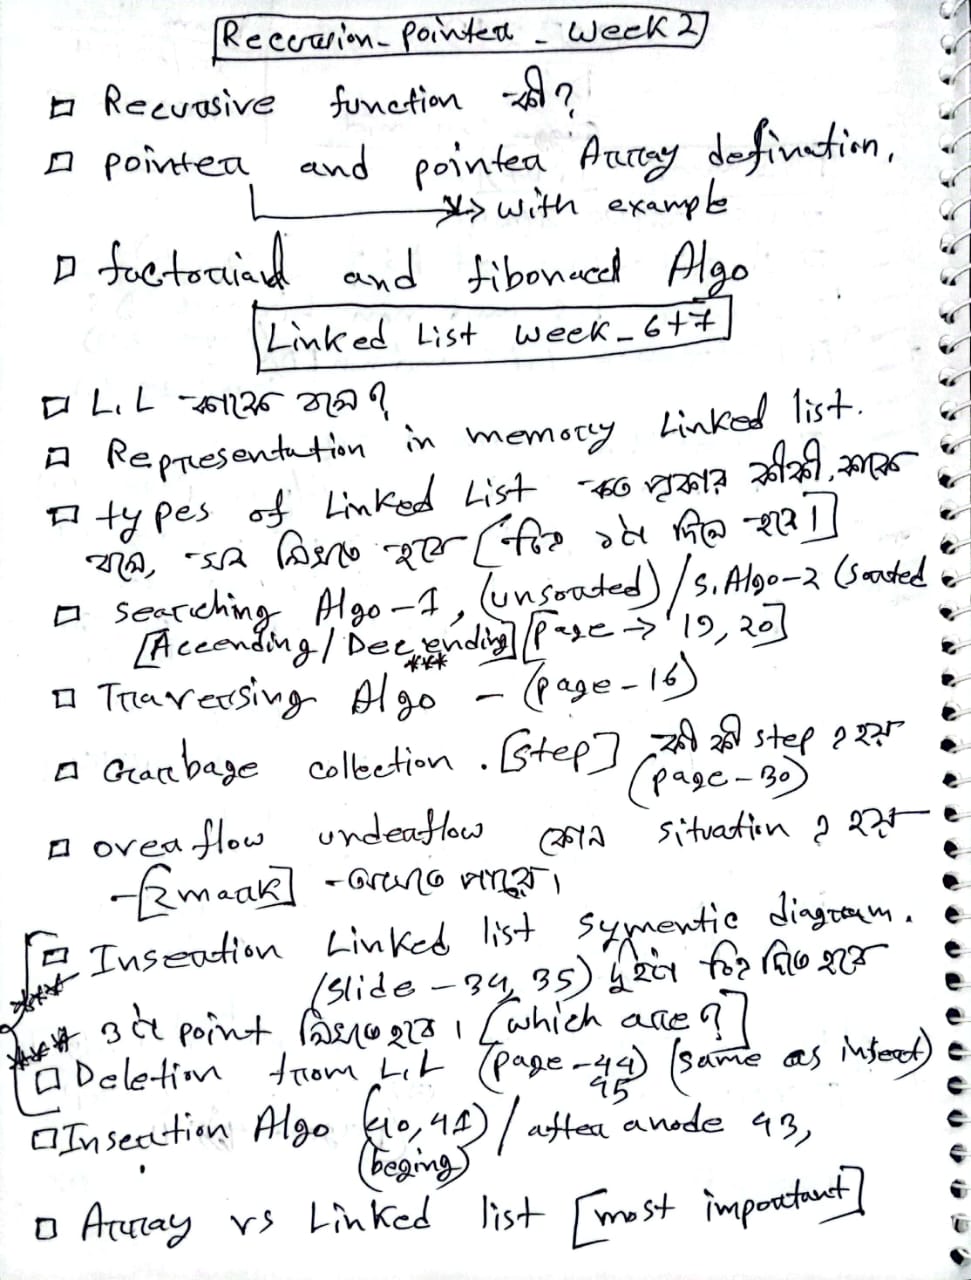 Recursion- pointer - week 2
Recursive function কী?
pointer and pointer Array defination.
with example
factorial and fibonacci Algo
Linked List week - 6+7
L.L কাকে বলে?
Representation in memory Linked list.
types of Linked List কত প্রকার কীকী, কাকে
বলে, লিখতে হবে [চিত্র ১টা দিলে হবে।]
searching Algo-1, (unsorted) / S. Algo-2 (sorted
[Accending/Decending] [page → 19, 20]
***
Traversing Algo - (page-16)
Garbage collection. [step] কী কী step ? হয়
(page-30)
overflow underflow কোন situation ? হয়
-[2mark] -
Insertion Linked list symentic diagram.
(slide - 34, 35) দুইটা চিত্র দিতে হবে
***
*** 3 টা point লিখতে হবে। [which are?]
Deletion from L.L (page-44) (same as insert)
45
Insertion Algo (40, 41) / after a node 43,
(beging)
Array vs Linked list [most important]